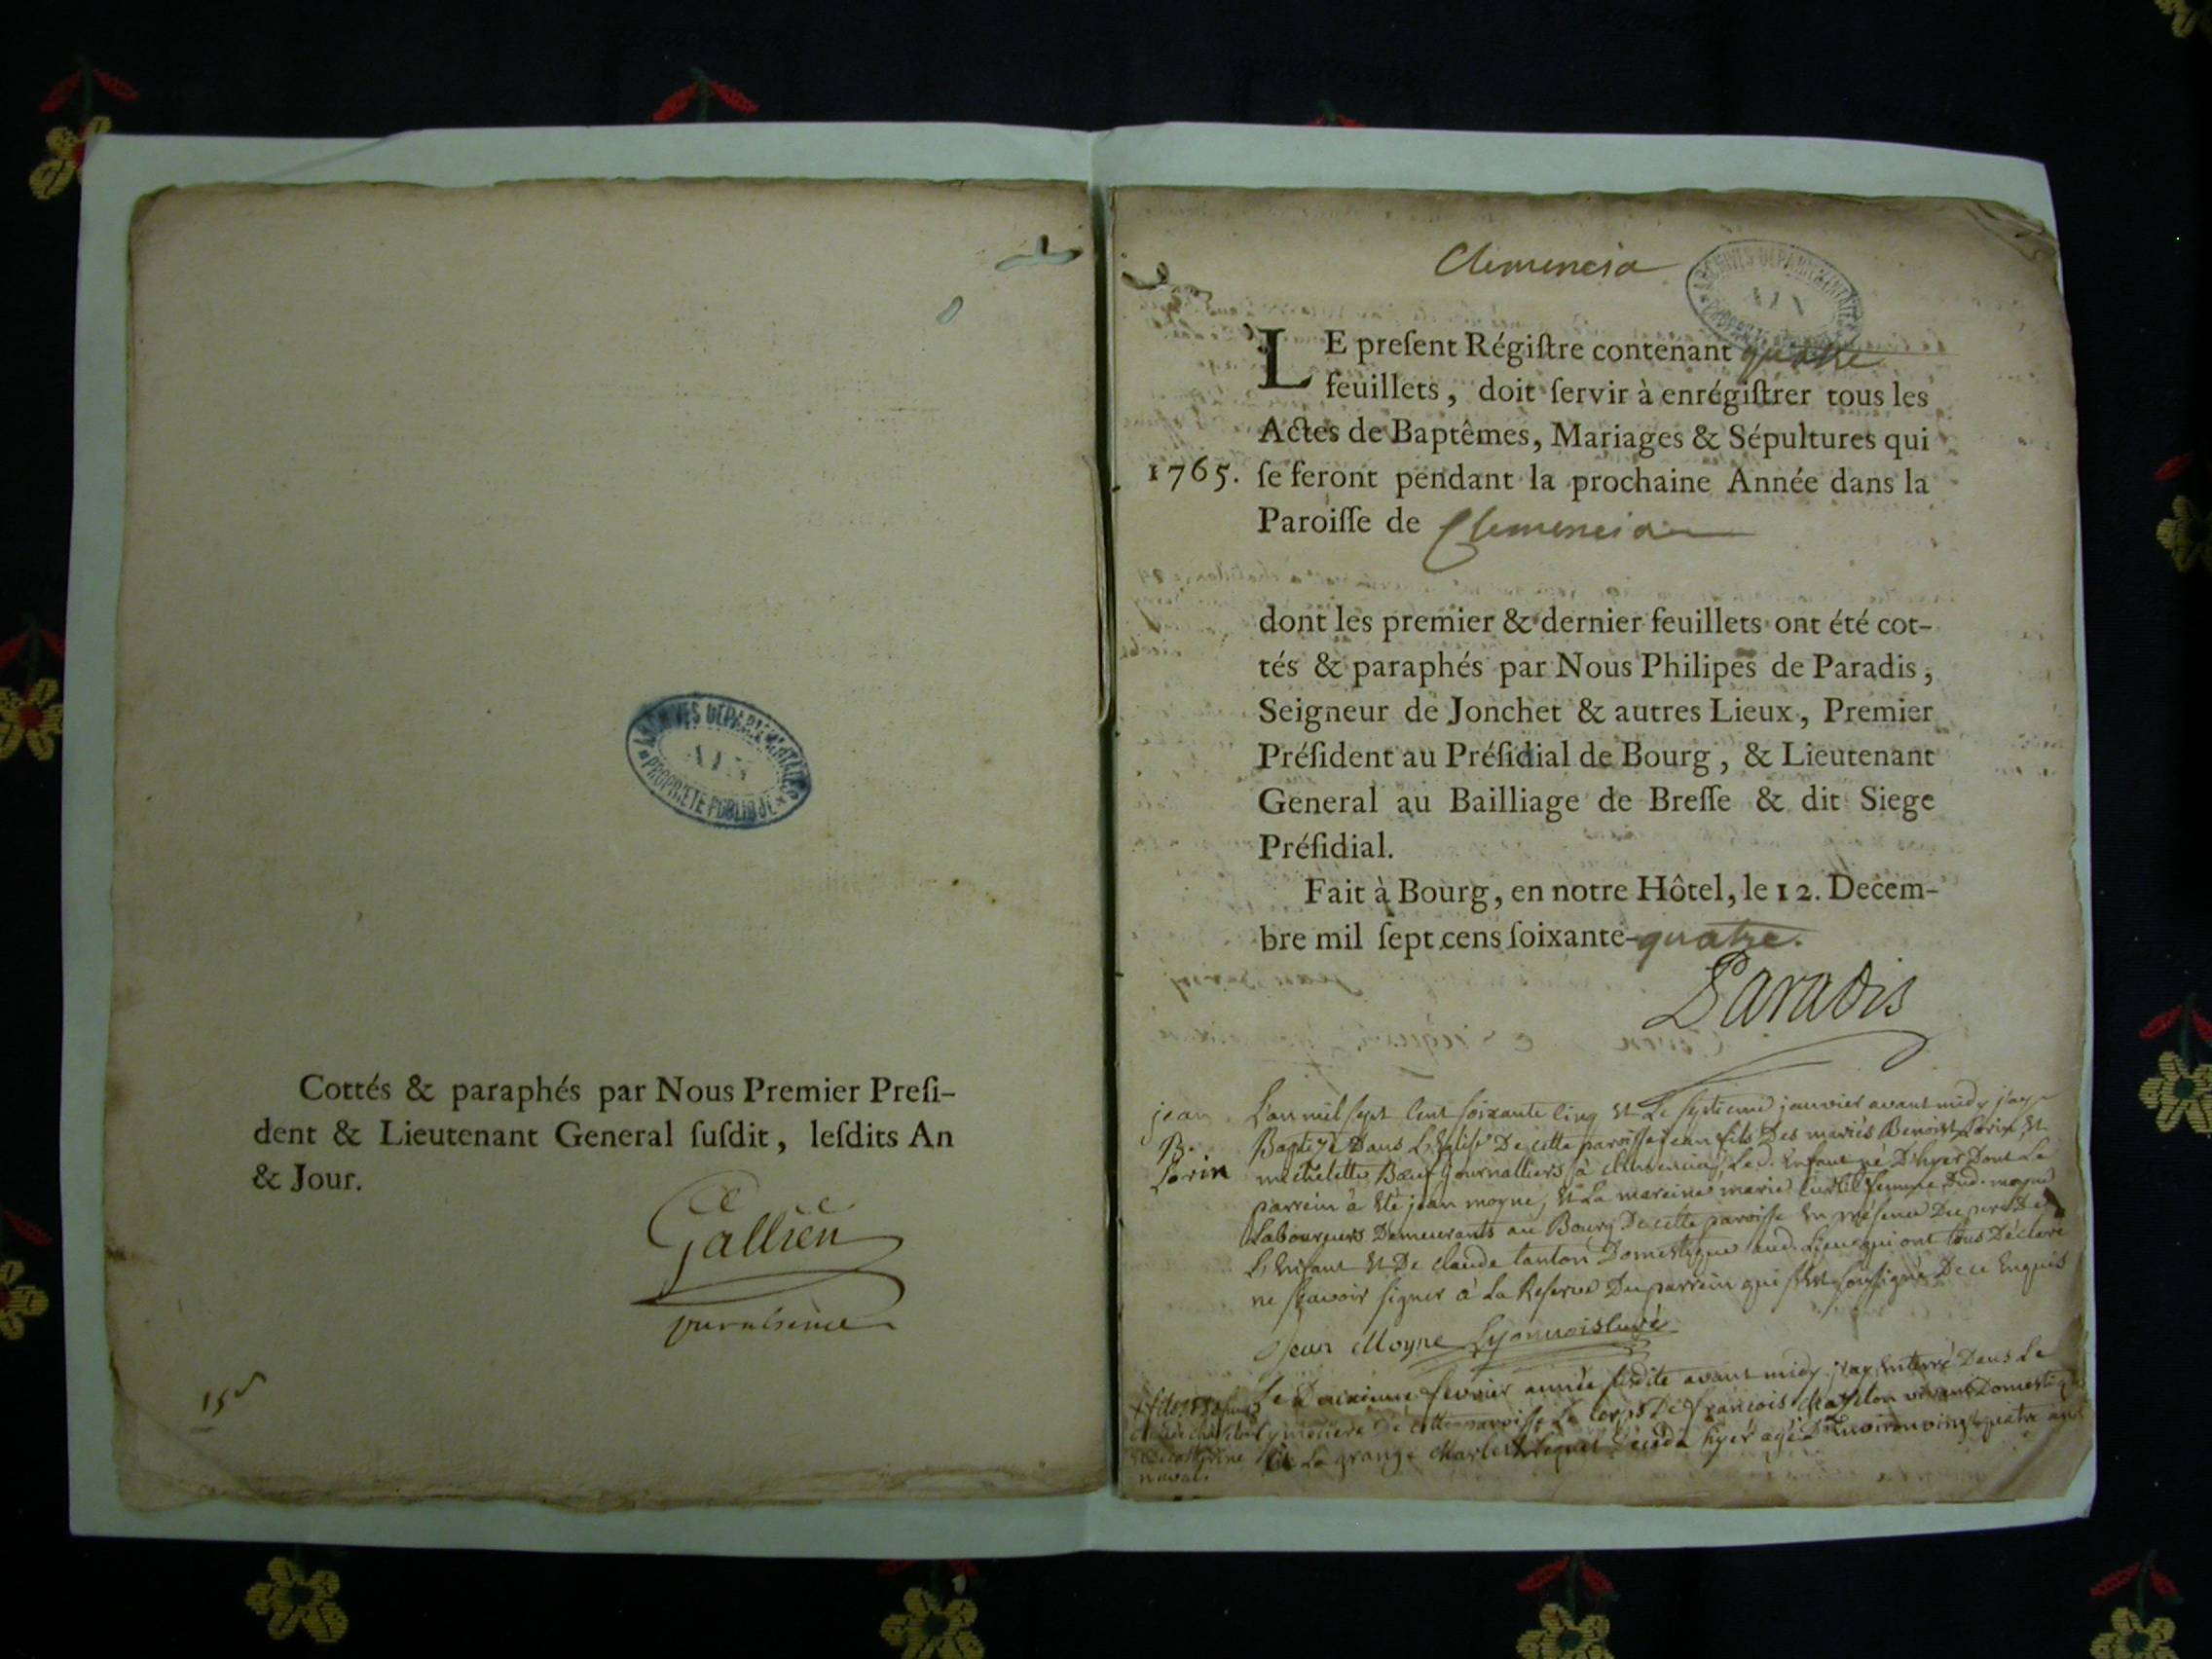 ARCHIVES DEPARTEMENTALES
AIN
PROPRIETE PUBLIQUE
Cottés & paraphés par Nous Premier Preſi-
dent & Lieutenant General ſuſdit, leſdits An
& Jour.
Gallien
15
Clemencia
ARCHIVES DEPARTEMENTALES
AIN
LE preſent Régiſtre contenant quatre
feuillets, doit ſervir à enrégiſtrer tous les
Actes de Baptêmes, Mariages & Sépultures qui
1765. ſe feront pendant la prochaine Année dans la
Paroiſſe de Clemencia
dont les premier & dernier feuillets ont été cot-
tés & paraphés par Nous Philipes de Paradis,
Seigneur de Jonchet & autres Lieux, Premier
Préſident au Préſidial de Bourg, & Lieutenant
General au Bailliage de Breſſe & dit Siege
Préſidial.
Fait à Bourg, en notre Hôtel, le 12. Decem-
bre mil ſept cens ſoixante-quatre.
Paradis
jean
B.
Lorin
L'an mil sept cent soixante cinq et le septieme janvier avant midy j'ay
Baptizé Dans L'Eglise De cette paroisse jean fils Des mariés Benoist Lorin et
michelette Bœuf journalliers à Clemencia, Le d. Enfant né D'hyer Dont Le
parrein à été jean moyne, et La mareine marie femme Dud. moyne
Laboureurs Demeurants au Bourg De cette paroisse En présence Du pere De
L'Enfant et De claude tanton Domestique aud. Lieu qui ont tous Déclaré
ne sçavoir signer à La Reserve Du parrein qui s'est soussigné De ce Enquis
Jean Moyne Lyonnois curé
Le Deuxieme fevrier année susdite avant midy j'ay Enterré Dans Le
cymetiere De cette paroisse Le corps De françois chatelon vivant Domestique
La grange Décédé hyer agé D'Environ vingt quatre ans